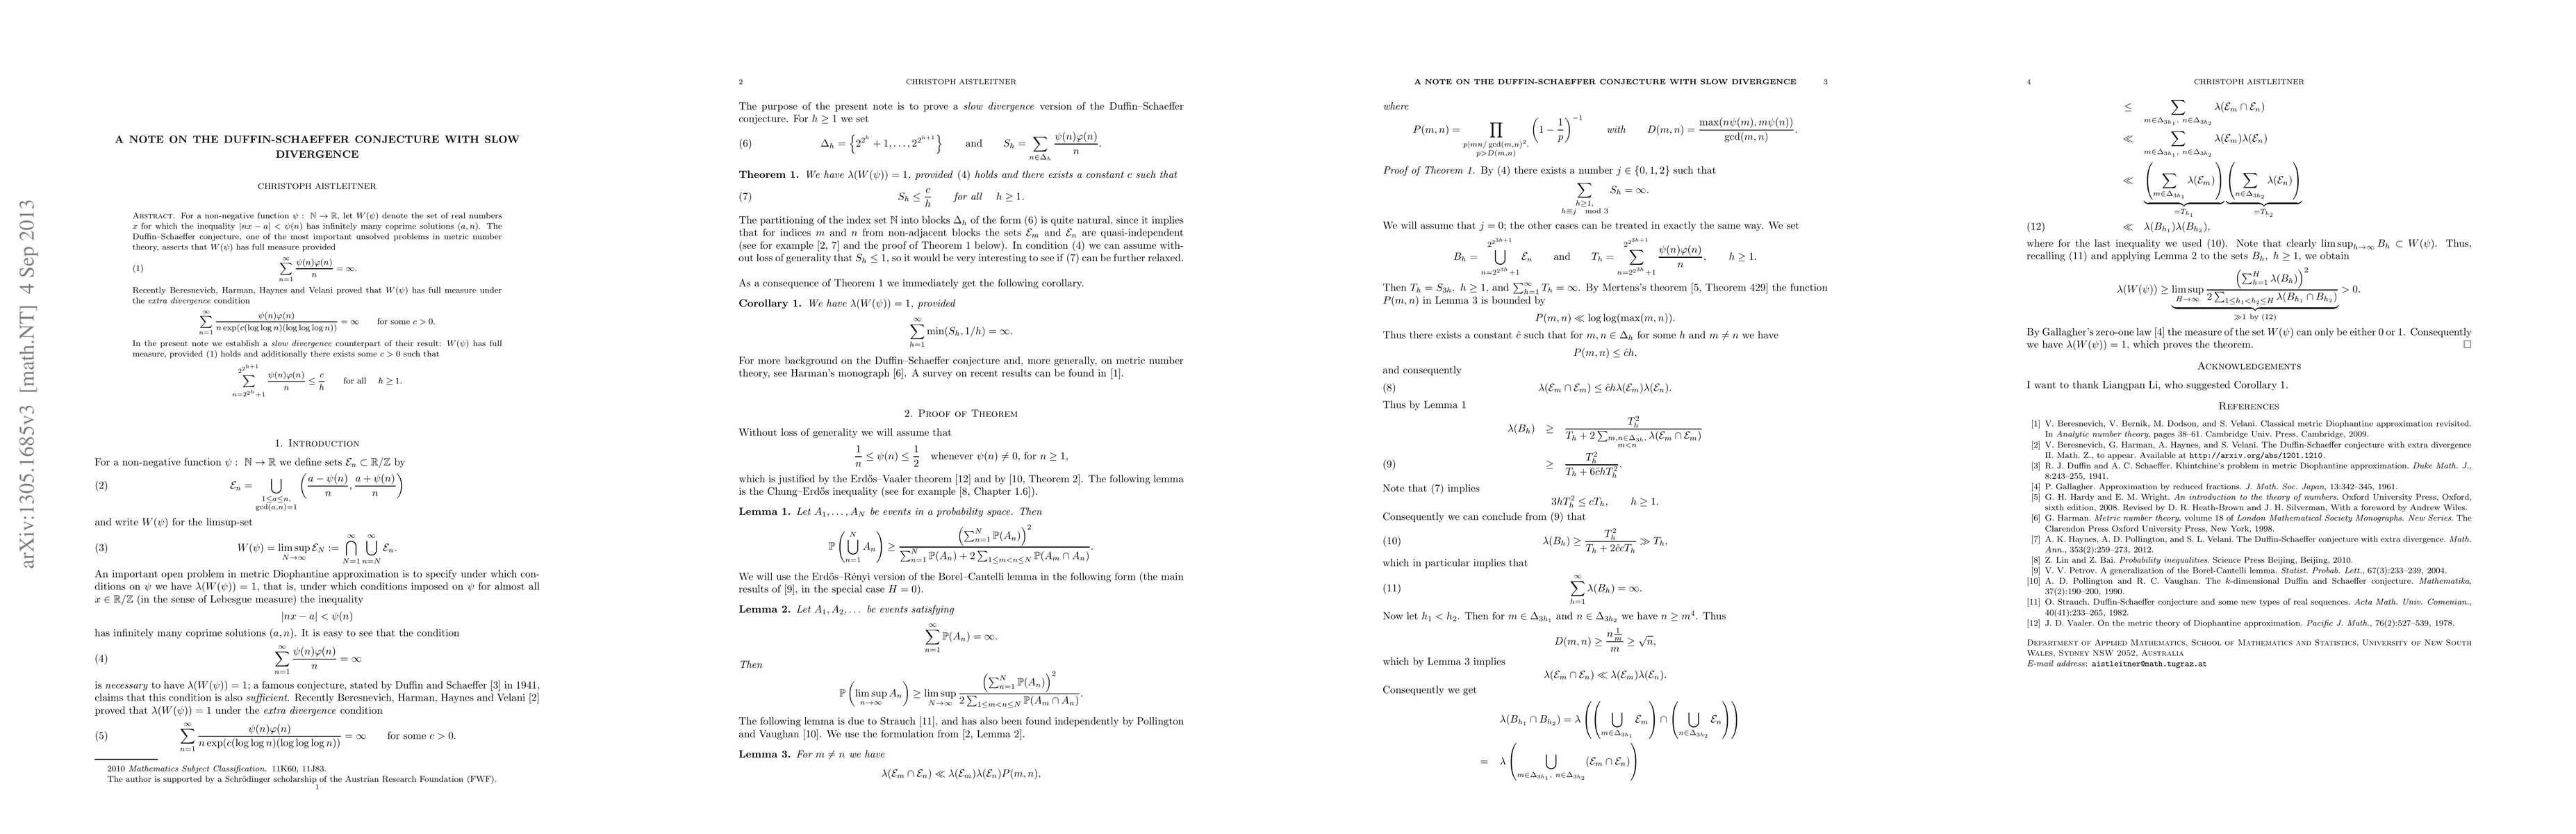 arXiv:1305.1685v3 [math.NT] 4 Sep 2013
A NOTE ON THE DUFFIN-SCHAEFFER CONJECTURE WITH SLOW
DIVERGENCE
CHRISTOPH AISTLEITNER
Abstract. For a non-negative function ψ : ℕ → ℝ, let W(ψ) denote the set of real numbers
x for which the inequality |nx − a| < ψ(n) has infinitely many coprime solutions (a, n). The
Duffin–Schaeffer conjecture, one of the most important unsolved problems in metric number
theory, asserts that W(ψ) has full measure provided
(1) ∑_{n=1}^{∞} ψ(n)φ(n)/n = ∞.
Recently Beresnevich, Harman, Haynes and Velani proved that W(ψ) has full measure under
the extra divergence condition
∑_{n=1}^{∞} ψ(n)φ(n) / (n exp(c(log log n)(log log log n))) = ∞ for some c > 0.
In the present note we establish a slow divergence counterpart of their result: W(ψ) has full
measure, provided (1) holds and additionally there exists some c > 0 such that
∑_{n=2^{2^h}+1}^{2^{2^{h+1}}} ψ(n)φ(n)/n ≤ c/h for all h ≥ 1.
1. Introduction
For a non-negative function ψ : ℕ → ℝ we define sets ℰ_n ⊂ ℝ/ℤ by
(2) ℰ_n = ⋃_{1≤a≤n, gcd(a,n)=1} ( (a − ψ(n))/n , (a + ψ(n))/n )
and write W(ψ) for the limsup-set
(3) W(ψ) = lim sup_{N→∞} ℰ_N := ⋂_{N=1}^{∞} ⋃_{n=N}^{∞} ℰ_n.
An important open problem in metric Diophantine approximation is to specify under which con-
ditions on ψ we have λ(W(ψ)) = 1, that is, under which conditions imposed on ψ for almost all
x ∈ ℝ/ℤ (in the sense of Lebesgue measure) the inequality
|nx − a| < ψ(n)
has infinitely many coprime solutions (a, n). It is easy to see that the condition
(4) ∑_{n=1}^{∞} ψ(n)φ(n)/n = ∞
is necessary to have λ(W(ψ)) = 1; a famous conjecture, stated by Duffin and Schaeffer [3] in 1941,
claims that this condition is also sufficient. Recently Beresnevich, Harman, Haynes and Velani [2]
proved that λ(W(ψ)) = 1 under the extra divergence condition
(5) ∑_{n=1}^{∞} ψ(n)φ(n) / (n exp(c(log log n)(log log log n))) = ∞ for some c > 0.
2010 Mathematics Subject Classification. 11K60, 11J83.
The author is supported by a Schrödinger scholarship of the Austrian Research Foundation (FWF).
1
2 CHRISTOPH AISTLEITNER
The purpose of the present note is to prove a slow divergence version of the Duffin–Schaeffer
conjecture. For h ≥ 1 we set
(6) Δ_h = {2^{2^h} + 1, . . . , 2^{2^{h+1}}} and S_h = ∑_{n∈Δ_h} ψ(n)φ(n)/n.
Theorem 1. We have λ(W(ψ)) = 1, provided (4) holds and there exists a constant c such that
(7) S_h ≤ c/h for all h ≥ 1.
The partitioning of the index set ℕ into blocks Δ_h of the form (6) is quite natural, since it implies
that for indices m and n from non-adjacent blocks the sets ℰ_m and ℰ_n are quasi-independent
(see for example [2, 7] and the proof of Theorem 1 below). In condition (4) we can assume with-
out loss of generality that S_h ≤ 1, so it would be very interesting to see if (7) can be further relaxed.
As a consequence of Theorem 1 we immediately get the following corollary.
Corollary 1. We have λ(W(ψ)) = 1, provided
∑_{h=1}^{∞} min(S_h, 1/h) = ∞.
For more background on the Duffin–Schaeffer conjecture and, more generally, on metric number
theory, see Harman's monograph [6]. A survey on recent results can be found in [1].
2. Proof of Theorem
Without loss of generality we will assume that
1/n ≤ ψ(n) ≤ 1/2 whenever ψ(n) ≠ 0, for n ≥ 1,
which is justified by the Erdős–Vaaler theorem [12] and by [10, Theorem 2]. The following lemma
is the Chung–Erdős inequality (see for example [8, Chapter 1.6]).
Lemma 1. Let A_1, . . . , A_N be events in a probability space. Then
ℙ(⋃_{n=1}^{N} A_n) ≥ (∑_{n=1}^{N} ℙ(A_n))^2 / (∑_{n=1}^{N} ℙ(A_n) + 2 ∑_{1≤m<n≤N} ℙ(A_m ∩ A_n)).
We will use the Erdős–Rényi version of the Borel–Cantelli lemma in the following form (the main
results of [9], in the special case H = 0).
Lemma 2. Let A_1, A_2, . . . be events satisfying
∑_{n=1}^{∞} ℙ(A_n) = ∞.
Then
ℙ(lim sup_{n→∞} A_n) ≥ lim sup_{N→∞} (∑_{n=1}^{N} ℙ(A_n))^2 / (2 ∑_{1≤m<n≤N} ℙ(A_m ∩ A_n)).
The following lemma is due to Strauch [11], and has also been found independently by Pollington
and Vaughan [10]. We use the formulation from [2, Lemma 2].
Lemma 3. For m ≠ n we have
λ(ℰ_m ∩ ℰ_n) ≪ λ(ℰ_m)λ(ℰ_n)P(m, n),
A NOTE ON THE DUFFIN-SCHAEFFER CONJECTURE WITH SLOW DIVERGENCE 3
where
P(m, n) = ∏_{p|mn/gcd(m,n)^2, p>D(m,n)} (1 − 1/p)^{−1} with D(m, n) = max(nψ(m), mψ(n)) / gcd(m, n).
Proof of Theorem 1. By (4) there exists a number j ∈ {0, 1, 2} such that
∑_{h≥1, h≡j mod 3} S_h = ∞.
We will assume that j = 0; the other cases can be treated in exactly the same way. We set
B_h = ⋃_{n=2^{2^{3h}}+1}^{2^{2^{3h+1}}} ℰ_n and T_h = ∑_{n=2^{2^{3h}}+1}^{2^{2^{3h+1}}} ψ(n)φ(n)/n, h ≥ 1.
Then T_h = S_{3h}, h ≥ 1, and ∑_{h=1}^{∞} T_h = ∞. By Mertens's theorem [5, Theorem 429] the function
P(m, n) in Lemma 3 is bounded by
P(m, n) ≪ log log(max(m, n)).
Thus there exists a constant ĉ such that for m, n ∈ Δ_h for some h and m ≠ n we have
P(m, n) ≤ ĉh,
and consequently
(8) λ(ℰ_m ∩ ℰ_m) ≤ ĉhλ(ℰ_m)λ(ℰ_n).
Thus by Lemma 1
λ(B_h) ≥ T_h^2 / (T_h + 2 ∑_{m,n∈Δ_{3h}, m<n} λ(ℰ_m ∩ ℰ_m))
(9) ≥ T_h^2 / (T_h + 6ĉhT_h^2).
Note that (7) implies
3hT_h^2 ≤ cT_h, h ≥ 1.
Consequently we can conclude from (9) that
(10) λ(B_h) ≥ T_h^2 / (T_h + 2ĉcT_h) ≫ T_h,
which in particular implies that
(11) ∑_{h=1}^{∞} λ(B_h) = ∞.
Now let h_1 < h_2. Then for m ∈ Δ_{3h_1} and n ∈ Δ_{3h_2} we have n ≥ m^4. Thus
D(m, n) ≥ (n 1/m)/m ≥ √n,
which by Lemma 3 implies
λ(ℰ_m ∩ ℰ_n) ≪ λ(ℰ_m)λ(ℰ_n).
Consequently we get
λ(B_{h_1} ∩ B_{h_2}) = λ((⋃_{m∈Δ_{3h_1}} ℰ_m) ∩ (⋃_{n∈Δ_{3h_2}} ℰ_n))
= λ(⋃_{m∈Δ_{3h_1}, n∈Δ_{3h_2}} (ℰ_m ∩ ℰ_n))
4 CHRISTOPH AISTLEITNER
≤ ∑_{m∈Δ_{3h_1}, n∈Δ_{3h_2}} λ(ℰ_m ∩ ℰ_n)
≪ ∑_{m∈Δ_{3h_1}, n∈Δ_{3h_2}} λ(ℰ_m)λ(ℰ_n)
≪ (∑_{m∈Δ_{3h_1}} λ(ℰ_m)) (∑_{n∈Δ_{3h_2}} λ(ℰ_n))
=T_{h_1} =T_{h_2}
(12) ≪ λ(B_{h_1})λ(B_{h_2}),
where for the last inequality we used (10). Note that clearly lim sup_{h→∞} B_h ⊂ W(ψ). Thus,
recalling (11) and applying Lemma 2 to the sets B_h, h ≥ 1, we obtain
λ(W(ψ)) ≥ lim sup_{H→∞} (∑_{h=1}^{H} λ(B_h))^2 / (2 ∑_{1≤h_1<h_2≤H} λ(B_{h_1} ∩ B_{h_2})) > 0.
≫1 by (12)
By Gallagher's zero-one law [4] the measure of the set W(ψ) can only be either 0 or 1. Consequently
we have λ(W(ψ)) = 1, which proves the theorem. □
Acknowledgements
I want to thank Liangpan Li, who suggested Corollary 1.
References
[1] V. Beresnevich, V. Bernik, M. Dodson, and S. Velani. Classical metric Diophantine approximation revisited.
In Analytic number theory, pages 38–61. Cambridge Univ. Press, Cambridge, 2009.
[2] V. Beresnevich, G. Harman, A. Haynes, and S. Velani. The Duffin-Schaeffer conjecture with extra divergence
II. Math. Z., to appear. Available at http://arxiv.org/abs/1201.1210.
[3] R. J. Duffin and A. C. Schaeffer. Khintchine's problem in metric Diophantine approximation. Duke Math. J.,
8:243–255, 1941.
[4] P. Gallagher. Approximation by reduced fractions. J. Math. Soc. Japan, 13:342–345, 1961.
[5] G. H. Hardy and E. M. Wright. An introduction to the theory of numbers. Oxford University Press, Oxford,
sixth edition, 2008. Revised by D. R. Heath-Brown and J. H. Silverman, With a foreword by Andrew Wiles.
[6] G. Harman. Metric number theory, volume 18 of London Mathematical Society Monographs. New Series. The
Clarendon Press Oxford University Press, New York, 1998.
[7] A. K. Haynes, A. D. Pollington, and S. L. Velani. The Duffin-Schaeffer conjecture with extra divergence. Math.
Ann., 353(2):259–273, 2012.
[8] Z. Lin and Z. Bai. Probability inequalities. Science Press Beijing, Beijing, 2010.
[9] V. V. Petrov. A generalization of the Borel-Cantelli lemma. Statist. Probab. Lett., 67(3):233–239, 2004.
[10] A. D. Pollington and R. C. Vaughan. The k-dimensional Duffin and Schaeffer conjecture. Mathematika,
37(2):190–200, 1990.
[11] O. Strauch. Duffin-Schaeffer conjecture and some new types of real sequences. Acta Math. Univ. Comenian.,
40(41):233–265, 1982.
[12] J. D. Vaaler. On the metric theory of Diophantine approximation. Pacific J. Math., 76(2):527–539, 1978.
Department of Applied Mathematics, School of Mathematics and Statistics, University of New South
Wales, Sydney NSW 2052, Australia
E-mail address: aistleitner@math.tugraz.at